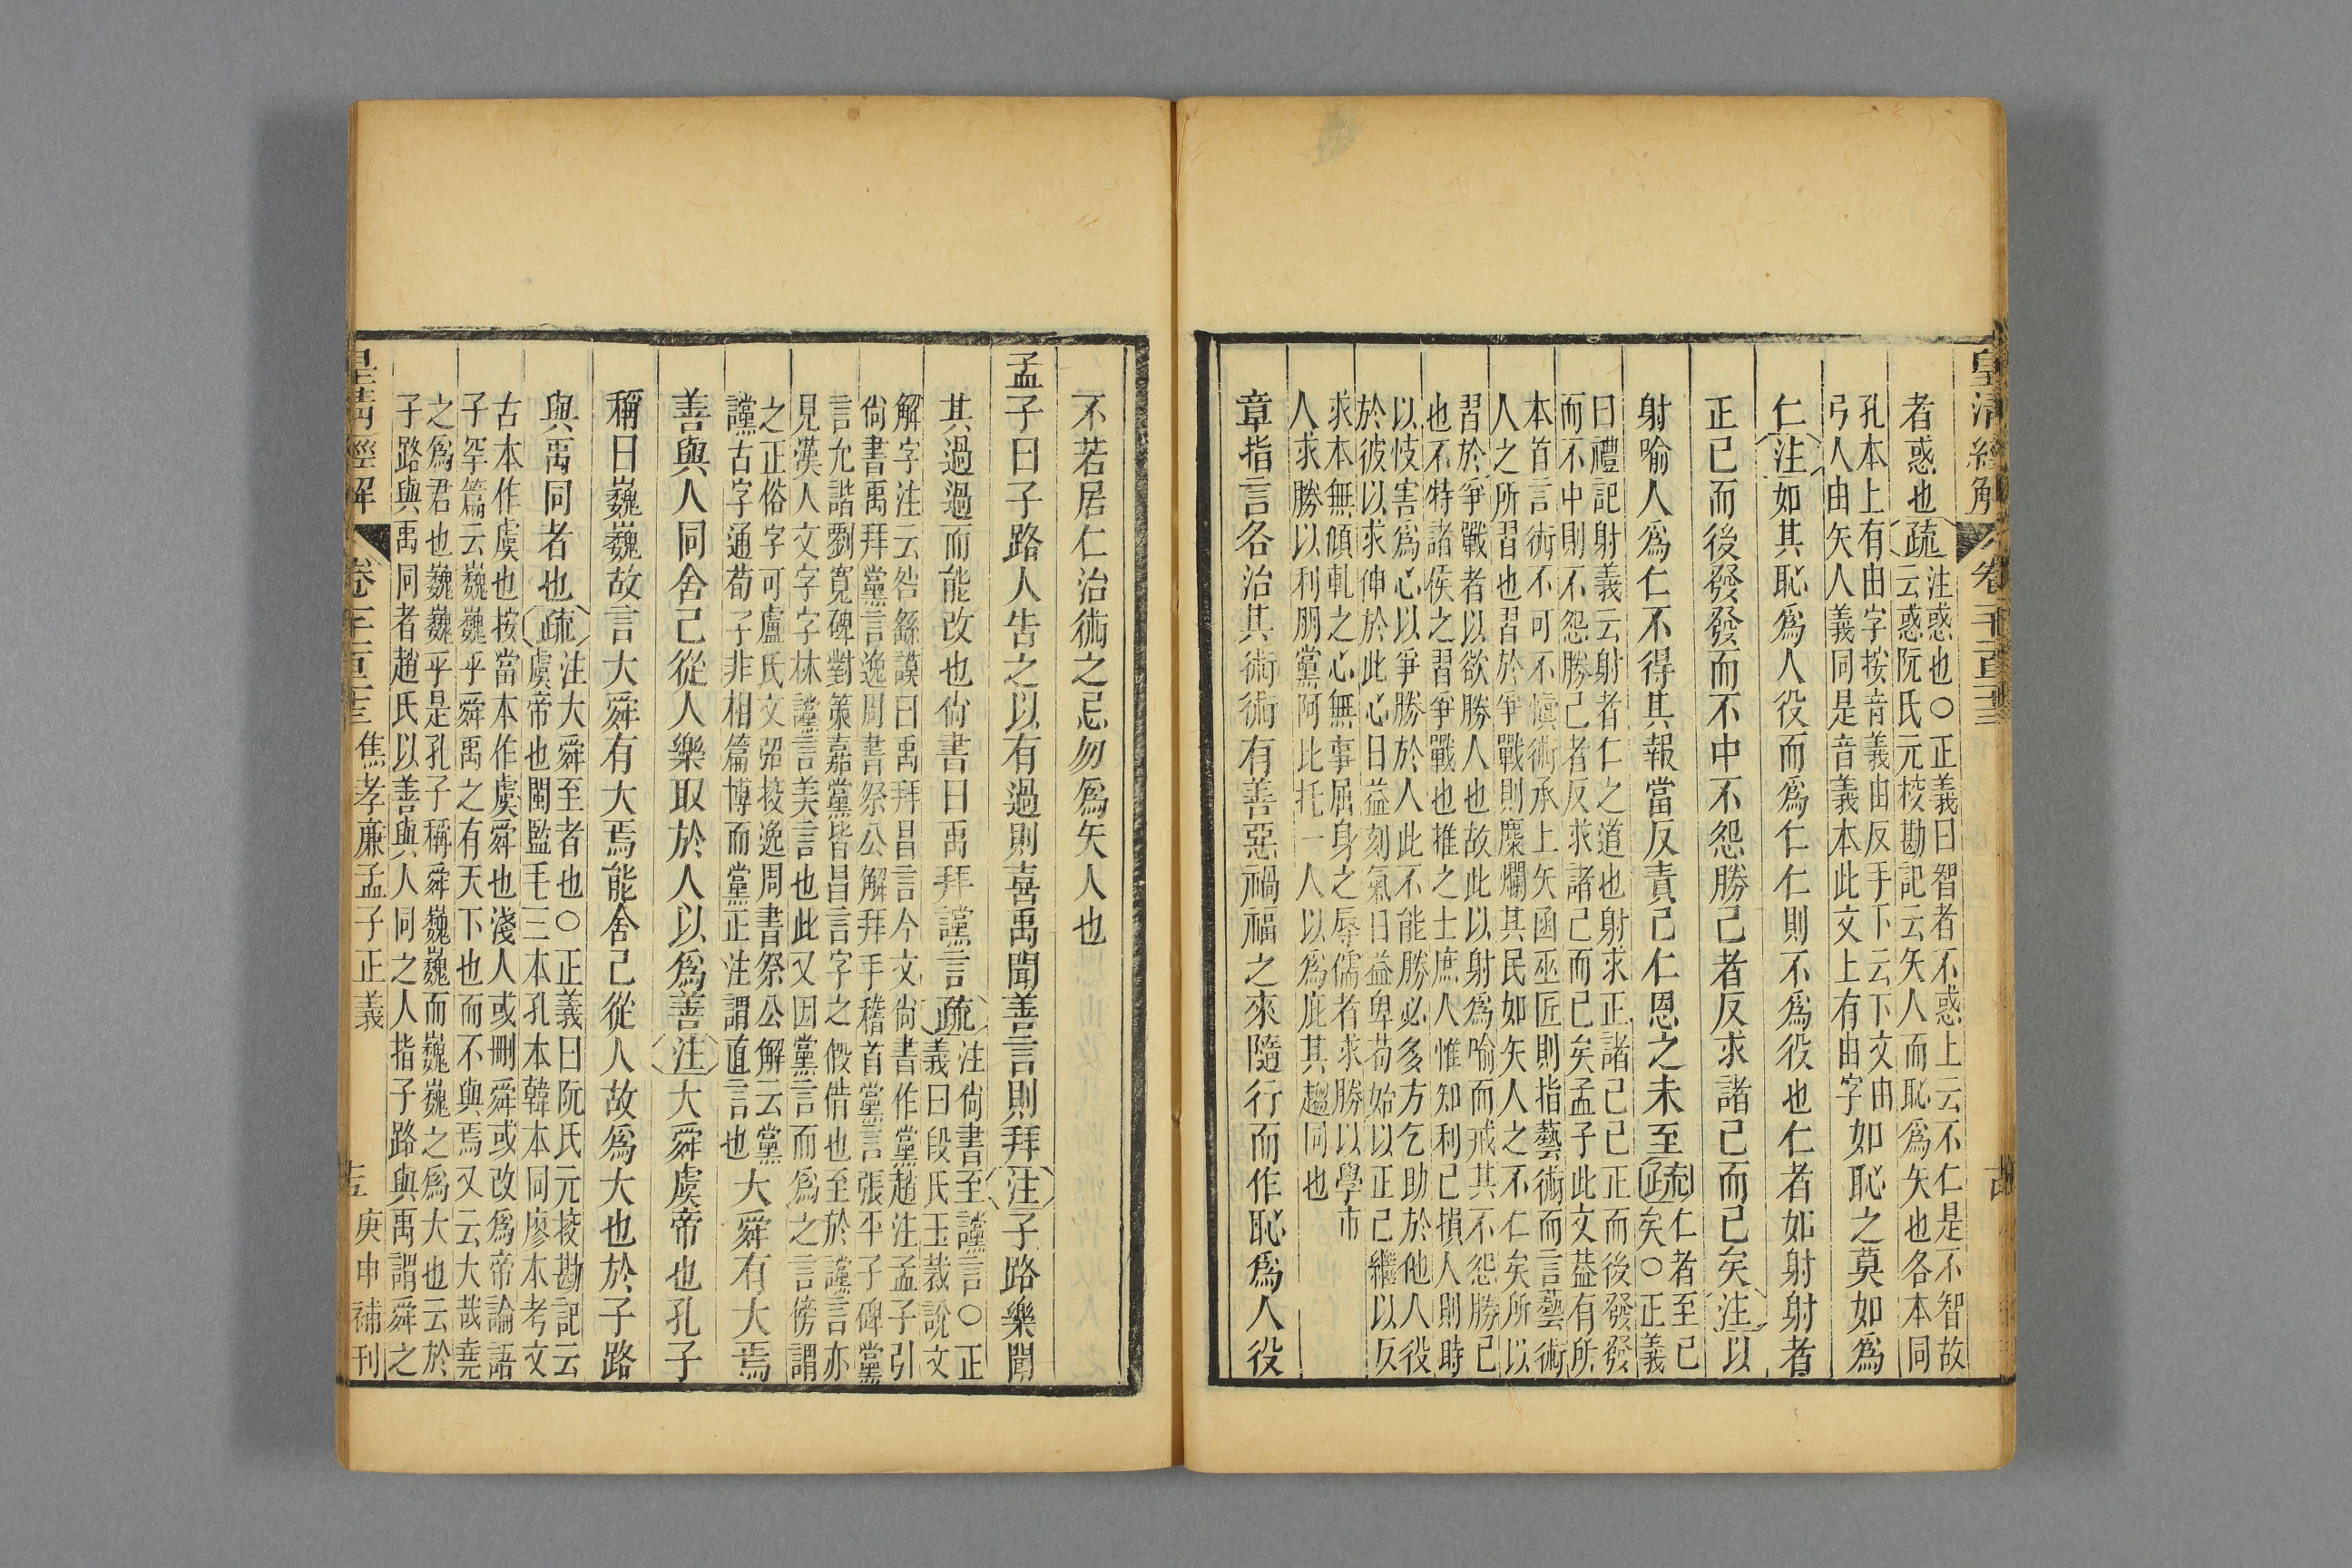 皇清經解
者惑也疏注惑也○正義曰智者不惑上云不仁是不智故
云惑阮氏元校勘記云矢人而恥爲矢也各本同
孔本上有由字按音義由反手下云下文由
弓人由矢人義同是音義本此文上有由字如恥之莫如爲
仁注如其恥爲人役而爲仁仁則不爲役也仁者如射射者
正己而後發發而不中不怨勝己者反求諸己而已矣注以
射喻人爲仁不得其報當反責己仁恩之未至疏仁者至己
矣○正義
曰禮記射義云射者仁之道也射求正諸己己正而後發發
而不中則不怨勝己者反求諸己而已矣孟子此文葢有所
本首言術不可不愼術承上矢函巫匠則指藝術而言藝術
人之所習也習於爭戰則糜爛其民如矢人之不仁矣所以
習於爭戰者以欲勝人也故此以射爲喻而戒其不怨勝己
也不特諸侯之習爭戰也推之士庶人惟知利己損人則時
以忮害爲心以爭勝於人此不能勝必多方乞助於他人役
於彼以求伸於此心日益刻氣日益卑苟始以正己繼以反
求本無傾軋之心無事屈身之辱儒者求勝以學市
人求勝以利朋黨阿比托一人以爲庇其趨同也
章指言各治其術術有善惡禍福之來隨行而作恥爲人役
不若居仁治術之忌勿爲矢人也
孟子曰子路人告之以有過則喜禹聞善言則拜注子路樂聞
其過過而能改也尙書曰禹拜讜言疏注尙書至讜言○正
義曰段氏玉裁說文
解字注云咎繇謨曰禹拜昌言今文尙書作黨趙注孟子引
尙書禹拜黨言逸周書祭公解拜手稽首黨言張平子碑黨
言允諧劉寬碑對策嘉黨皆昌言字之假借也至於讜言亦
見漢人文字字林讜言美言也此又因黨言而爲之言傍謂
之正俗字可盧氏文弨挍逸周書祭公解云黨
讜古字通荀子非相篇博而黨正注謂直言也大舜有大焉
善與人同舍己從人樂取於人以爲善注大舜虞帝也孔子
稱曰巍巍故言大舜有大焉能舍己從人故爲大也於子路
與禹同者也疏注大舜至者也○正義曰阮氏元挍勘記云
虞帝也閩監毛三本孔本韓本同廖本考文
古本作虞也按當本作虞舜也淺人或刪舜或改爲帝論語
子罕篇云巍巍乎舜禹之有天下也而不與焉又云大哉堯
之爲君也巍巍乎是孔子稱舜巍巍而巍巍之爲大也云於
子路與禹同者趙氏以善與人同之人指子路與禹謂舜之
皇清經解 焦孝廉孟子正義 庚申補刊